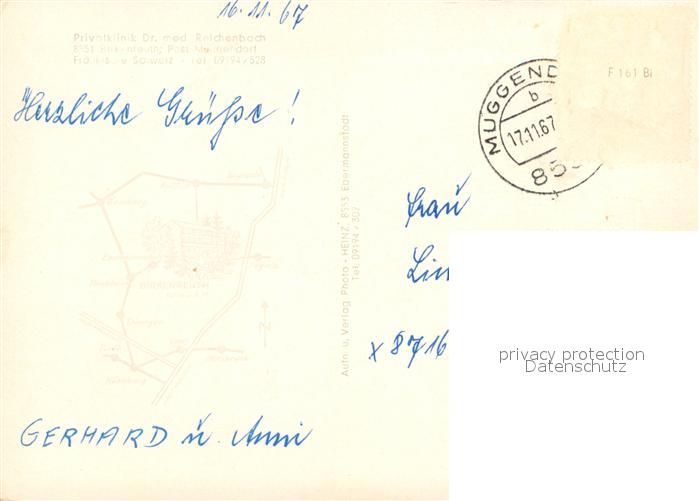 16.11.67
Privatklinik Dr. med. Reichenbach
8551 Birkenreuth, Post Muggendorf
Fränkische Schweiz - Tel. 09194/528
F 161 Bi
MUGGEND
b
17.11.67
855
Herzliche Grüße!
Bamberg
BIRKENREUTH
Nürnberg
N
Aufn. u. Verlag Photo - HEINZ, 8553 Ebermannstadt
Tel. 09194 / 302
Frau
Lin
x 8716
privacy protection
Datenschutz
GERHARD u. Anni